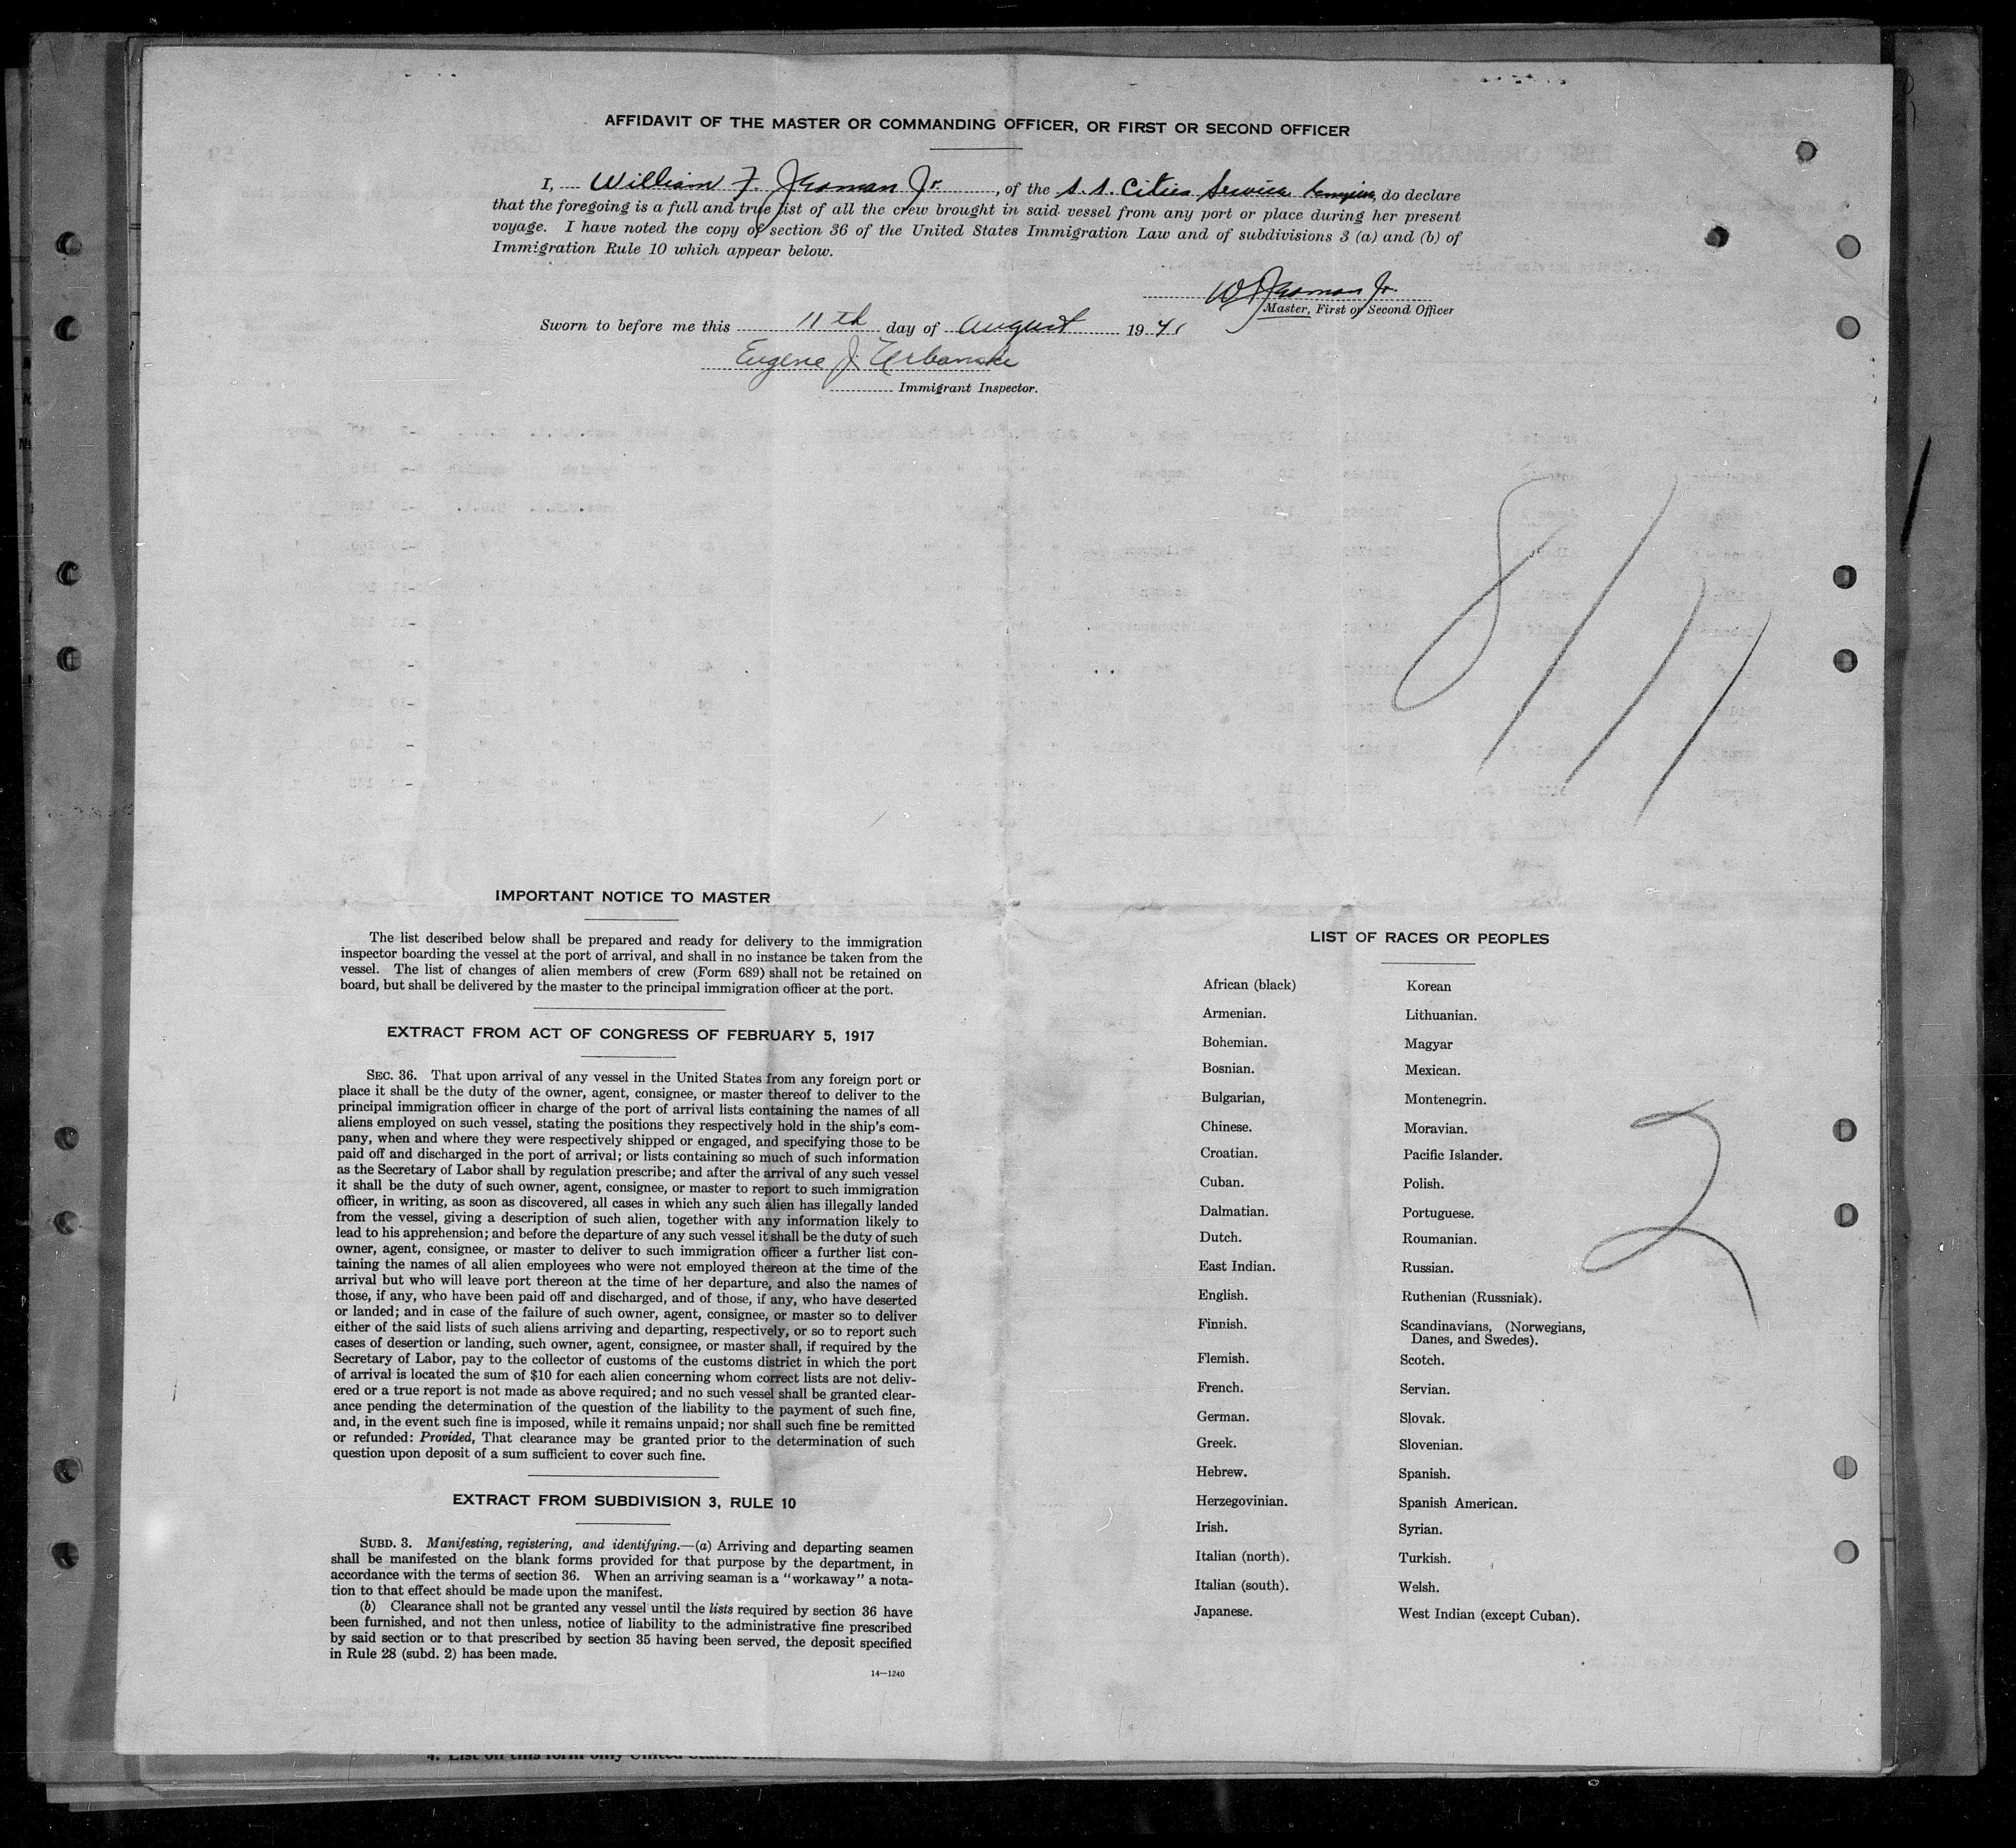 AFFIDAVIT OF THE MASTER OR COMMANDING OFFICER, OR FIRST OR SECOND OFFICER
I, William F. Jerman Jr., of the S. S. Cities Service Empire, do declare
that the foregoing is a full and true list of all the crew brought in said vessel from any port or place during her present
voyage. I have noted the copy of section 36 of the United States Immigration Law and of subdivisions 3 (a) and (b) of
Immigration Rule 10 which appear below.
W F Jerman Jr.
Master, First or Second Officer
Sworn to before me this 11th day of August 1941
Eugene J.
Immigrant Inspector.
8/11
IMPORTANT NOTICE TO MASTER
The list described below shall be prepared and ready for delivery to the immigration
inspector boarding the vessel at the port of arrival, and shall in no instance be taken from the
vessel. The list of changes of alien members of crew (Form 689) shall not be retained on
board, but shall be delivered by the master to the principal immigration officer at the port.
EXTRACT FROM ACT OF CONGRESS OF FEBRUARY 5, 1917
SEC. 36. That upon arrival of any vessel in the United States from any foreign port or
place it shall be the duty of the owner, agent, consignee, or master thereof to deliver to the
principal immigration officer in charge of the port of arrival lists containing the names of all
aliens employed on such vessel, stating the positions they respectively hold in the ship's com-
pany, when and where they were respectively shipped or engaged, and specifying those to be
paid off and discharged in the port of arrival; or lists containing so much of such information
as the Secretary of Labor shall by regulation prescribe; and after the arrival of any such vessel
it shall be the duty of such owner, agent, consignee, or master to report to such immigration
officer, in writing, as soon as discovered, all cases in which any such alien has illegally landed
from the vessel, giving a description of such alien, together with any information likely to
lead to his apprehension; and before the departure of any such vessel it shall be the duty of such
owner, agent, consignee, or master to deliver to such immigration officer a further list con-
taining the names of all alien employees who were not employed thereon at the time of the
arrival but who will leave port thereon at the time of her departure, and also the names of
those, if any, who have been paid off and discharged, and of those, if any, who have deserted
or landed; and in case of the failure of such owner, agent, consignee, or master so to deliver
either of the said lists of such aliens arriving and departing, respectively, or so to report such
cases of desertion or landing, such owner, agent, consignee, or master shall, if required by the
Secretary of Labor, pay to the collector of customs of the customs district in which the port
of arrival is located the sum of $10 for each alien concerning whom correct lists are not deliv-
ered or a true report is not made as above required; and no such vessel shall be granted clear-
ance pending the determination of the question of the liability to the payment of such fine,
and, in the event such fine is imposed, while it remains unpaid; nor shall such fine be remitted
or refunded: Provided, That clearance may be granted prior to the determination of such
question upon deposit of a sum sufficient to cover such fine.
EXTRACT FROM SUBDIVISION 3, RULE 10
SUBD. 3. Manifesting, registering, and identifying.—(a) Arriving and departing seamen
shall be manifested on the blank forms provided for that purpose by the department, in
accordance with the terms of section 36. When an arriving seaman is a "workaway" a nota-
tion to that effect should be made upon the manifest.
(b) Clearance shall not be granted any vessel until the lists required by section 36 have
been furnished, and not then unless, notice of liability to the administrative fine prescribed
by said section or to that prescribed by section 35 having been served, the deposit specified
in Rule 28 (subd. 2) has been made.
14—1240
LIST OF RACES OR PEOPLES
African (black)
Armenian.
Bohemian.
Bosnian.
Bulgarian,
Chinese.
Croatian.
Cuban.
Dalmatian.
Dutch.
East Indian.
English.
Finnish.
Flemish.
French.
German.
Greek.
Hebrew.
Herzegovinian.
Irish.
Italian (north).
Italian (south).
Japanese.
Korean
Lithuanian.
Magyar
Mexican.
Montenegrin.
Moravian.
Pacific Islander.
Polish.
Portuguese.
Roumanian.
Russian.
Ruthenian (Russniak).
Scandinavians, (Norwegians,
Danes, and Swedes).
Scotch.
Servian.
Slovak.
Slovenian.
Spanish.
Spanish American.
Syrian.
Turkish.
Welsh.
West Indian (except Cuban).
2
4. List on this form only United States